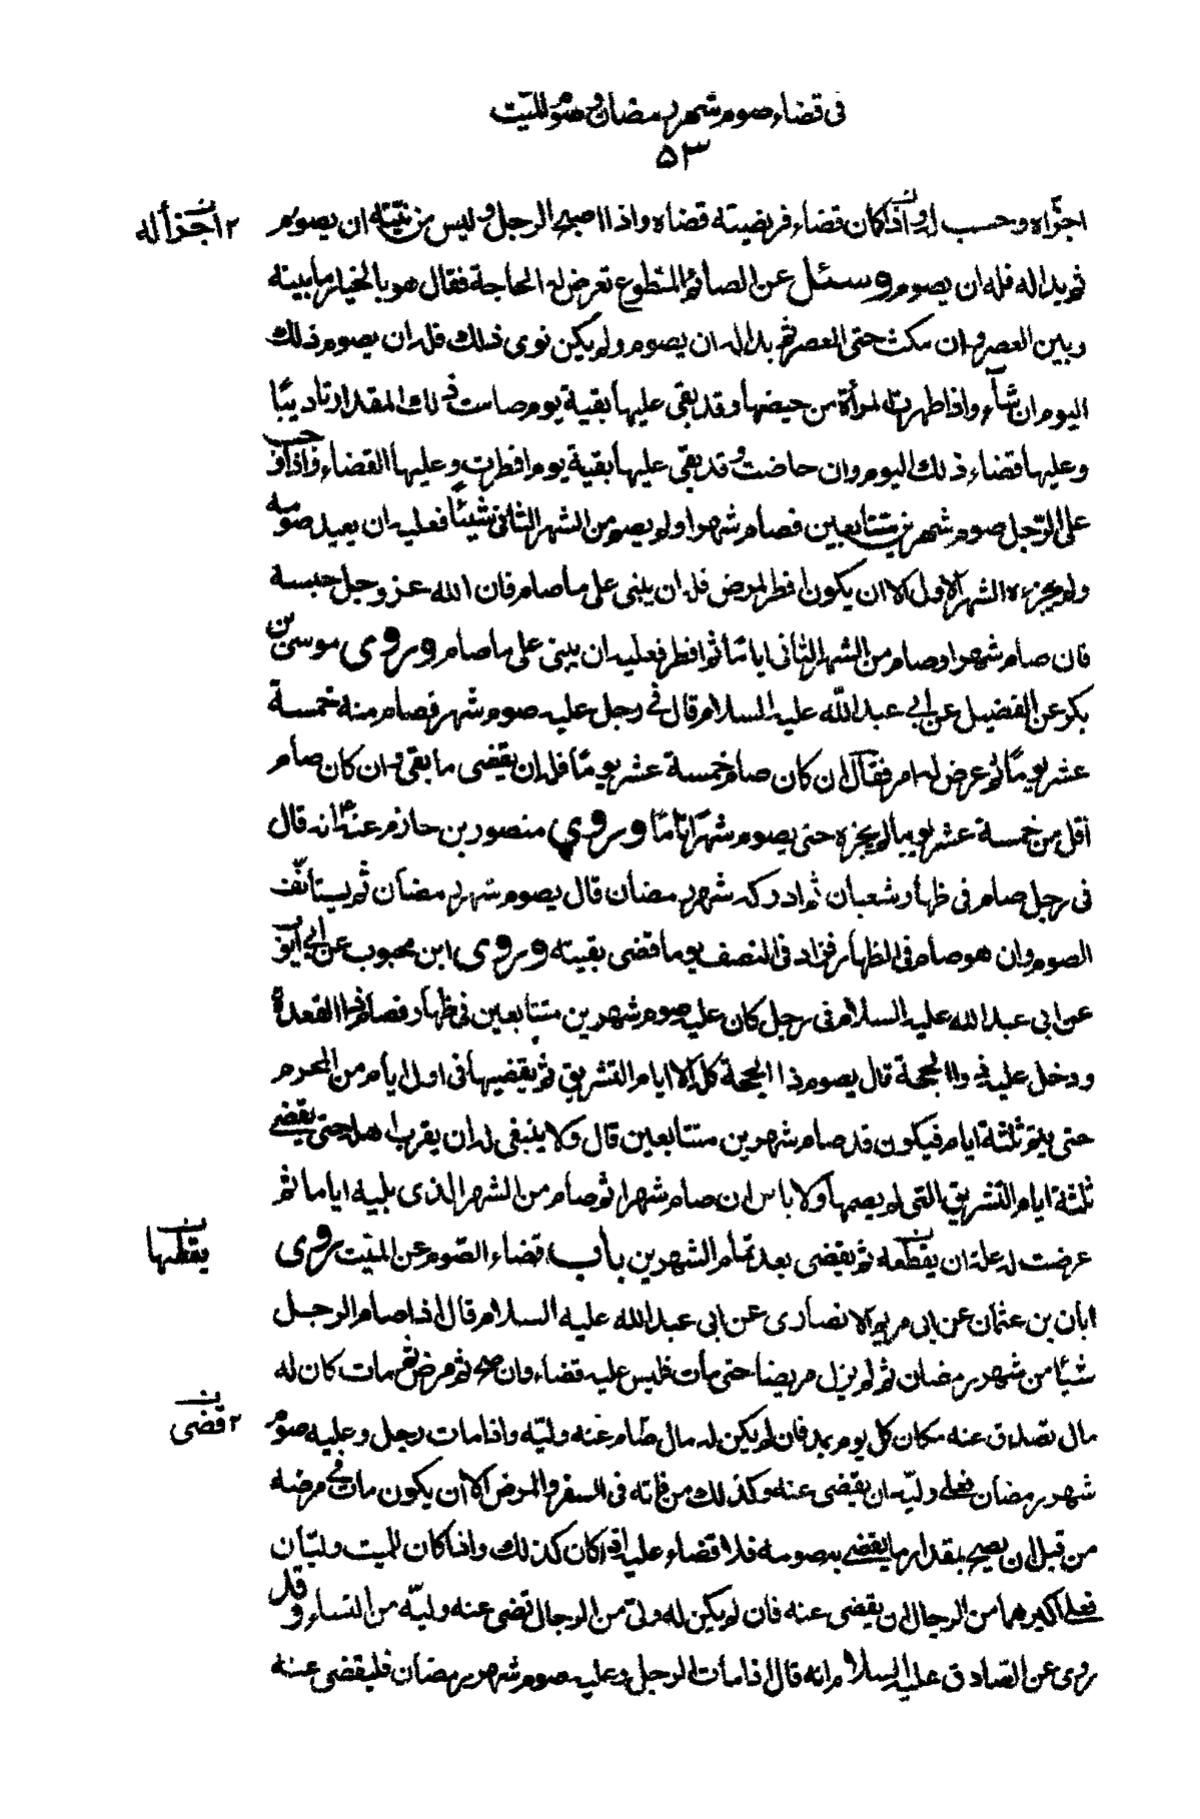 فى قضاء صوم شهر رمضان و صوم الميت
۵۳
اجزاه وحسب له واذا كان قضاء فريضيته قضاه واذا اصبح الرجل وليس من نيته ان يصوم
٢ اجزأ له
ثم بدا له فله ان يصوم وسئل عن الصائم المتطوع تعرض له الحاجة فقال هو بالخيار ما بينه
وبين العصر وان مكث حتى العصر ثم بدا له ان يصوم ولم يكن نوى ذلك فله ان يصوم ذلك
اليوم ان شاء واذا طهرت المرأة من حيضها وقد بقى عليها بقية يوم صامت ذلك المقدار تاديبًا
وعليها قضاء ذلك اليوم وان حاضت وقد بقى عليها بقية يوم افطرت وعليها القضاء واذا وجب
على الرجل صوم شهرين متتابعين فصام شهرا ولم يصم من الشهر الثانى شيئًا فعليه ان يعيد صومه
ولم يجزءه الشهر الاول الا ان يكون افطر لمرض فله ان يبنى على ما صام فان الله عز وجل حبسه
فان صام شهرا وصام من الشهر الثانى اياما ثم افطر فعليه ان يبنى على ما صام وروى موسى بن
بكر عن الفضيل عن ابى عبد الله عليه السلام قال فى رجل عليه صوم شهر فصام منه خمسة
عشر يومًا ثم عرض له امر فقال ان كان صام خمسة عشر يومًا فله ان يقضى ما بقى وان كان صام
اقل من خمسة عشر يوما لم يجزه حتى يصوم شهرًا تامًا وروى منصور بن حازم عنه انه قال
فى رجل صام فى ظهار شعبان ثم ادركه شهر رمضان قال يصوم شهر رمضان ثم يستانف
الصوم وان هو صام فى الظهار فزاد فى النصف يوما قضى بقيته وروى ابن محبوب عن ابى ايوب
عن ابى عبد الله عليه السلام فى رجل كان عليه صوم شهرين متتابعين فى ظهار فصام ذا القعدة
ودخل عليه ذو الحجة قال يصوم ذا الحجة كله الا ايام التشريق ثم يقضيها فى اول ايام من المحرم
حتى يتم ثلثة ايام فيكون قد صام شهرين متتابعين قال ولا ينبغى له ان يقرب اهله حتى يقضى
ثلثة ايام التشريق التى لم يصمها ولا باس ان صام شهرا ثم صام من الشهر الذى يليه اياما ثم
عرضت له علة ان يقطعه ثم يقضى بعد تمام الشهرين باب قضاء الصوم عن الميت روى
يقطعها
ابان بن عثمان عن ابى مريم الانصارى عن ابى عبد الله عليه السلام قال اذا صام الرجل
شيئا من شهر رمضان ثم لم يزل مريضا حتى مات فليس عليه قضاء وان صح ثم مرض ثم مات كان له
مال تصدق عنه مكان كل يوم بمد فان لم يكن له مال صام عنه وليّه واذا مات رجل وعليه صوم
٢ قضى
شهر رمضان فعلى وليّه ان يقضى عنه وكذلك من فاته فى السفر والمرض الا ان يكون مات فى مرضه
من قبل ان يصح بقدار ما يقضى به صومه فلا قضاء عليه اذا كان كذلك واذا كان للميت وليّان
فعلى اكبرهما من الرجال ان يقضى عنه فان لم يكن له ولىّ من الرجال قضى عنه وليّه من النساء وقد
روى عن الصادق عليه السلام انه قال اذا مات الرجل وعليه صوم شهر رمضان فليقضى عنه